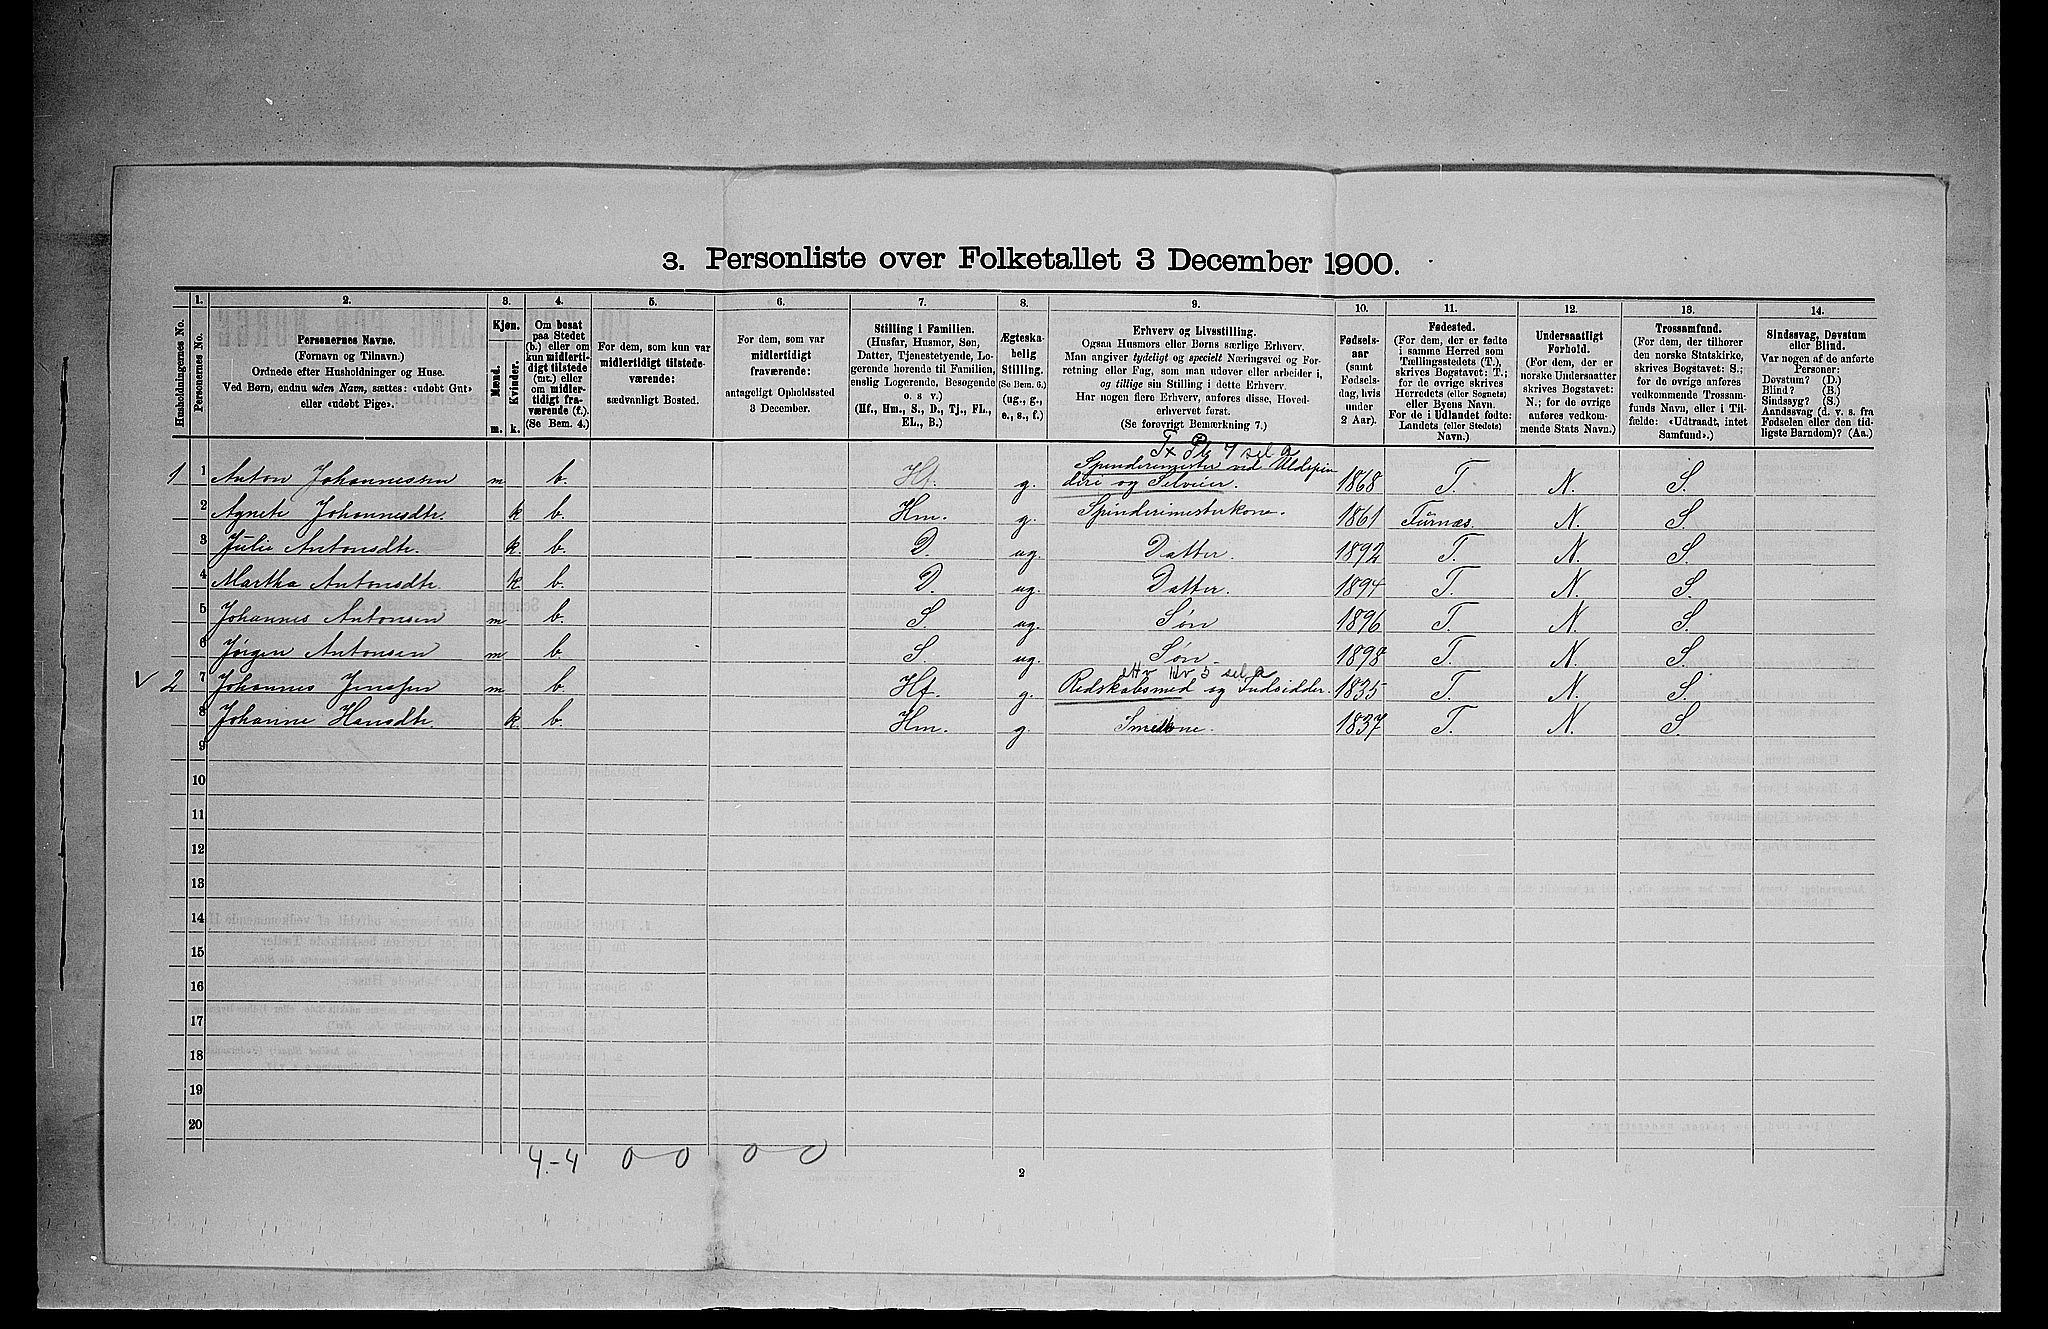 3. Personliste over Folketallet 3 December 1900.
Husholdningernes No.
1.
Personernes No.
2.
Personernes Navne.
(Fornavn og Tilnavn.)
Ordnede efter Husholdninger og Huse.
Ved Børn, endnu uden Navn, sættes: «udøbt Gut»
eller «udøbt Pige».
3.
Kjøn.
Mænd.
Kvinder.
m.
k.
4.
Om bosat
paa Stedet
(b.) eller om
kun midlerti-
digt tilstede
(mt.) eller
om midler-
tidigt fra-
værende (f.).
(Se Bem. 4.)
5.
For dem, som kun var
midlertidigt tilstede-
værende:
sædvanligt Bosted.
6.
For dem, som var
midlertidigt
fraværende:
antageligt Opholdssted
3 December.
7.
Stilling i Familien.
(Husfar, Husmor, Søn,
Datter, Tjenestetyende, Lo-
gerende hørende til Familien,
enslig Logerende, Besøgende
o. s v.)
(Hf., Hm., S., D., Tj., FL.,
EL., B.)
8.
Ægteska-
belig
Stilling.
(Se Bem. 6.)
(ug., g.,
e., s., f.)
9.
Erhverv og Livsstilling.
Ogsaa Husmors eller Børns særlige Erhverv.
Man angiver tydeligt og specielt Næringsvei og For-
retning eller Fag, som man udøver eller arbeider i,
og tillige sin Stilling i dette Erhverv.
Har nogen flere Erhverv, anføres disse, Hoved-
erhvervet først.
(Se forøvrigt Bemærkning 7.)
10.
Fødsels-
aar
(samt
Fødsels-
dag, hvis
under
2 Aar).
11.
Fødested.
(For dem, der er fødte
i samme Herred som
Tællingsstedets (T.),
skrives Bogstavet: T.;
for de øvrige skrives
Herredets (eller Sognets)
eller Byens Navn.
For de i Udlandet fødte:
Landets (eller Stedets)
Navn.)
12.
Undersaatligt
Forhold.
(For dem, der er
norske Undersaatter
skrives Bogstavet:
N.; for de øvrige
anføres vedkom-
mende Stats Navn.)
13.
Trossamfund.
(For dem, der tilhører
den norske Statskirke,
skrives Bogstavet: S.;
for de øvrige anføres
vedkommende Trossam-
funds Navn, eller i Til-
fælde: «Udtraadt, intet
Samfund».)
14.
Sindssvag, Døvstum
eller Blind.
Var nogen af de anførte
Personer:
Døvstum? (D.)
Blind? (B.)
Sindssyg? (S.)
Aandssvag (d. v. s. fra
Fødselen eller den tid-
ligste Barndom)? (Aa.)
1 1 Anton Johannessen m b. Hf. g. Spinderimester ved Uldspin 1868 T. N. S.
deri og Selveier.
2 Agnete Johannesdtr. k b. Hm. g. Spinderimesterkone. 1861 Furnæs. N. S.
3 Julie Antonsdtr. k. b. D. ug. Datter. 1892 T. N. S.
4 Martha Antonsdtr. k b. D. ug. Datter. 1894 T. N. S.
5 Johannes Antonsen m b. S. ug. Søn 1896 T. N. S.
6 Jørgen Antonsen m b. S. ug. Søn. 1898 T. N. S.
v 2 7 Johannes Jensen m b. Hf. g. Redskabsmed og Indsidder. 1835 T. N. S.
8 Johanne Hansdtr. k. b. Hm. g. Smedkone. 1837 T. N. S.
9
10
11
12
13
14
15
16
17
18
19
20
4-4 0 0 0 0
2